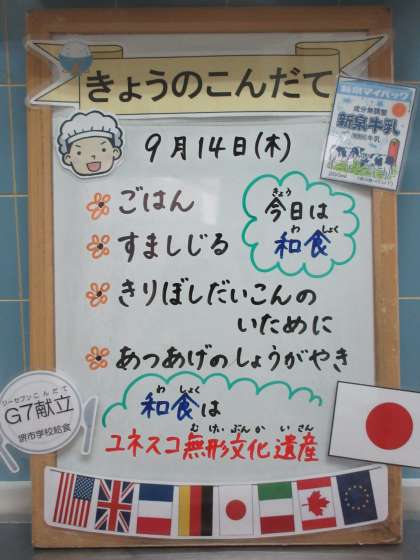 きょうのこんだて
9月14日(木)
ごはん
すましじる
きりぼしだいこんの
いために
あつあげのしょうがやき
きょう
今日は
わ しょく
和食
新泉牛乳
わ しょく
和食は
む けい ぶん か い さん
ユネスコ無形文化遺産
ジーセブンこんだて
G7献立
堺市学校給食